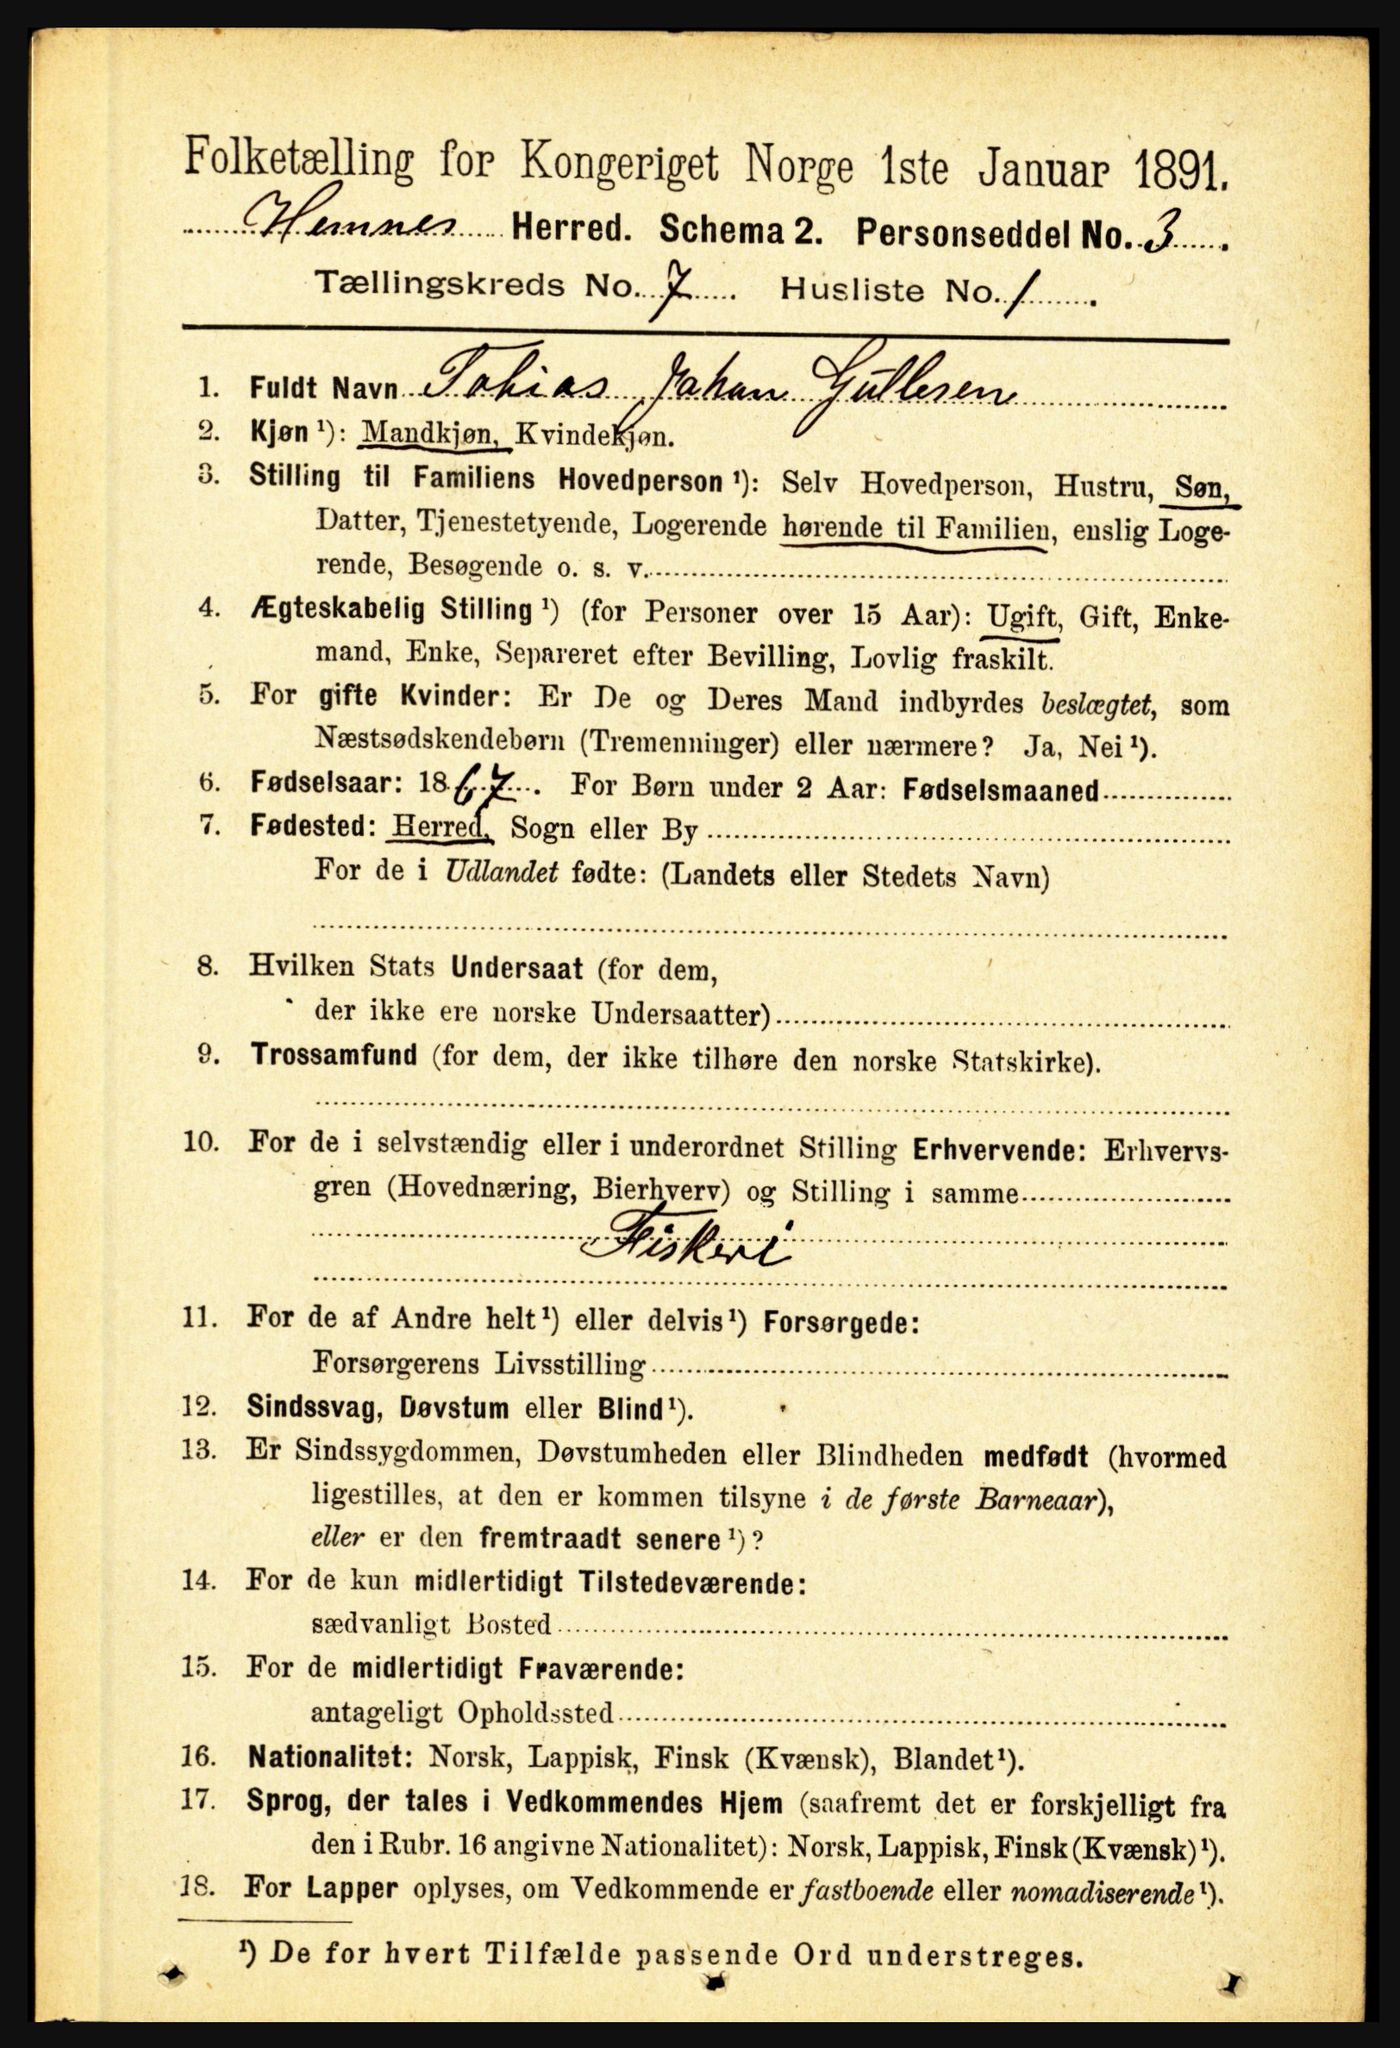 Folketælling for Kongeriget Norge 1ste Januar 1891.
Hemnes Herred. Schema 2. Personseddel No. 3.
Tællingskreds No. 7. Husliste No. 1.
1. Fuldt Navn Tobias Johan Gullesen
2. Kjøn¹): Mandkjøn, Kvindekjøn.
3. Stilling til Familiens Hovedperson¹): Selv Hovedperson, Hustru, Søn,
Datter, Tjenestetyende, Logerende hørende til Familien, enslig Loge-
rende, Besøgende o. s. v.
4. Ægteskabelig Stilling¹) (for Personer over 15 Aar): Ugift, Gift, Enke-
mand, Enke, Separeret efter Bevilling, Lovlig fraskilt.
5. For gifte Kvinder: Er De og Deres Mand indbyrdes beslægtet, som
Næstsødskendebørn (Tremenninger) eller nærmere? Ja, Nei¹).
6. Fødselsaar: 1867. For Børn under 2 Aar: Fødselsmaaned
7. Fødested: Herred, Sogn eller By
For de i Udlandet fødte: (Landets eller Stedets Navn)
8. Hvilken Stats Undersaat (for dem,
der ikke ere norske Undersaatter)
9. Trossamfund (for dem, der ikke tilhøre den norske Statskirke).
10. For de i selvstændig eller i underordnet Stilling Erhvervende: Erhvervs-
gren (Hovednæring, Bierhverv) og Stilling i samme
Fiskeri
11. For de af Andre helt¹) eller delvis¹) Forsørgede:
Forsørgerens Livsstilling
12. Sindssvag, Døvstum eller Blind¹).
13. Er Sindssygdommen, Døvstumheden eller Blindheden medfødt (hvormed
ligestilles, at den er kommen tilsyne i de første Barneaar),
eller er den fremtraadt senere¹)?
14. For de kun midlertidigt Tilstedeværende:
sædvanligt Bosted
15. For de midlertidigt Fraværende:
antageligt Opholdssted
16. Nationalitet: Norsk, Lappisk, Finsk (Kvænsk), Blandet¹).
17. Sprog, der tales i Vedkommendes Hjem (saafremt det er forskjelligt fra
den i Rubr. 16 angivne Nationalitet): Norsk, Lappisk, Finsk (Kvænsk)¹).
18. For Lapper oplyses, om Vedkommende er fastboende eller nomadiserende¹).
¹) De for hvert Tilfælde passende Ord understreges.